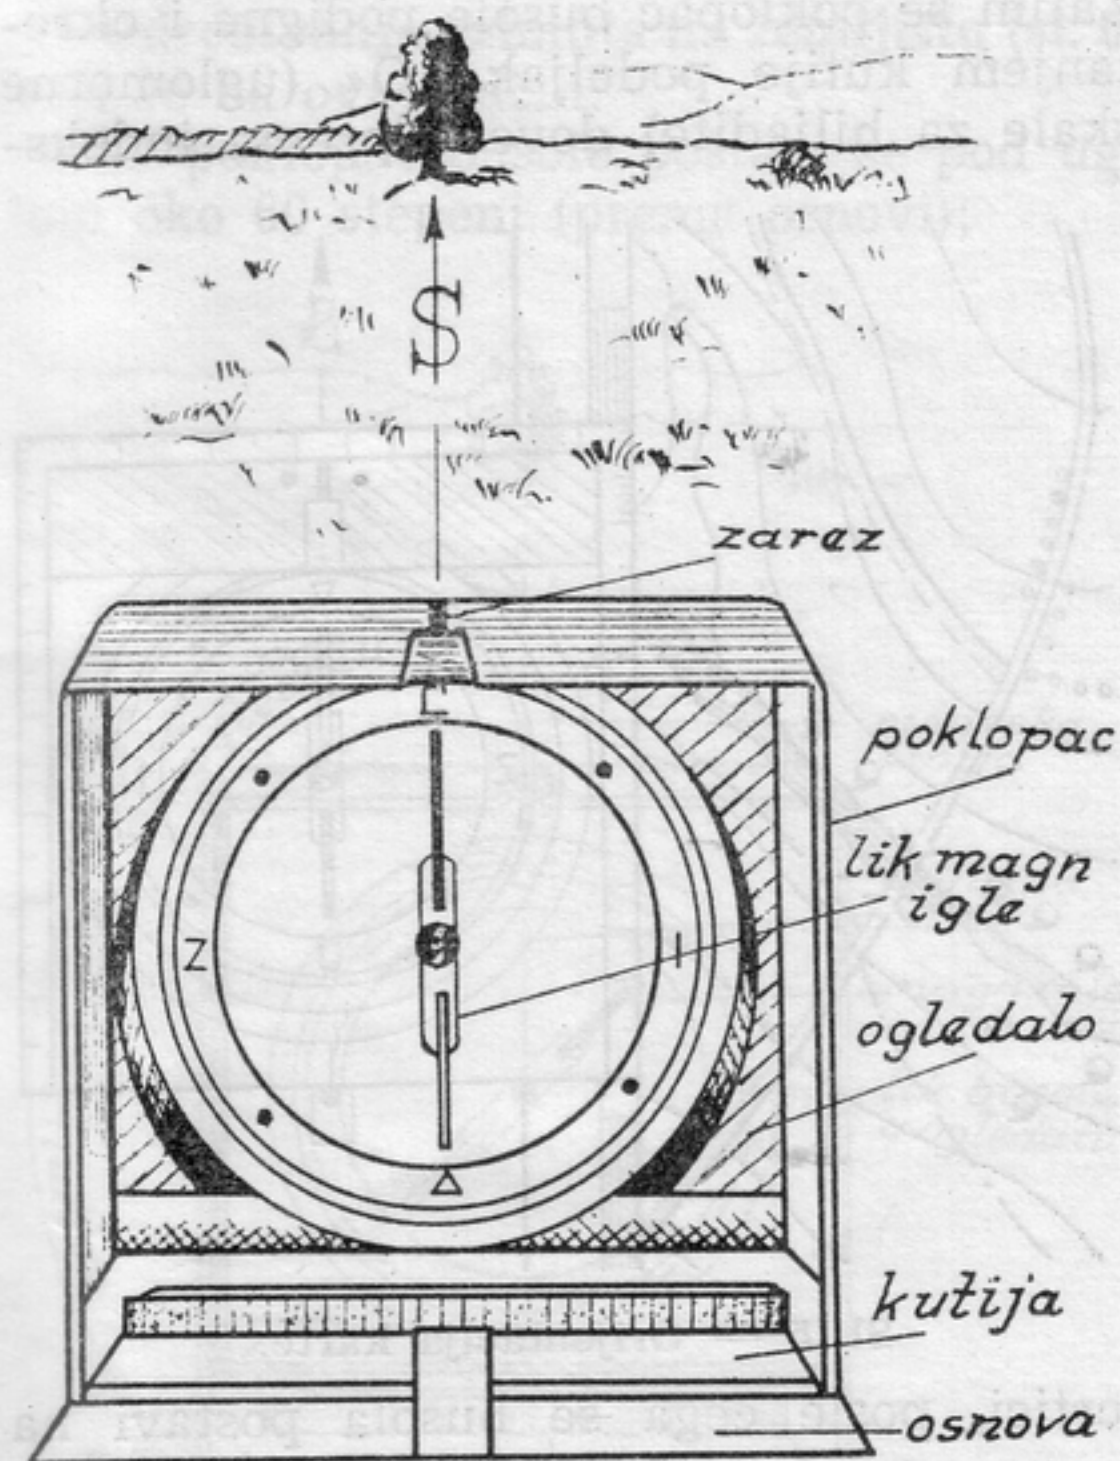 S
zarez
poklopac
lik magn
igle
Z
I
ogledalo
kutija
osnova